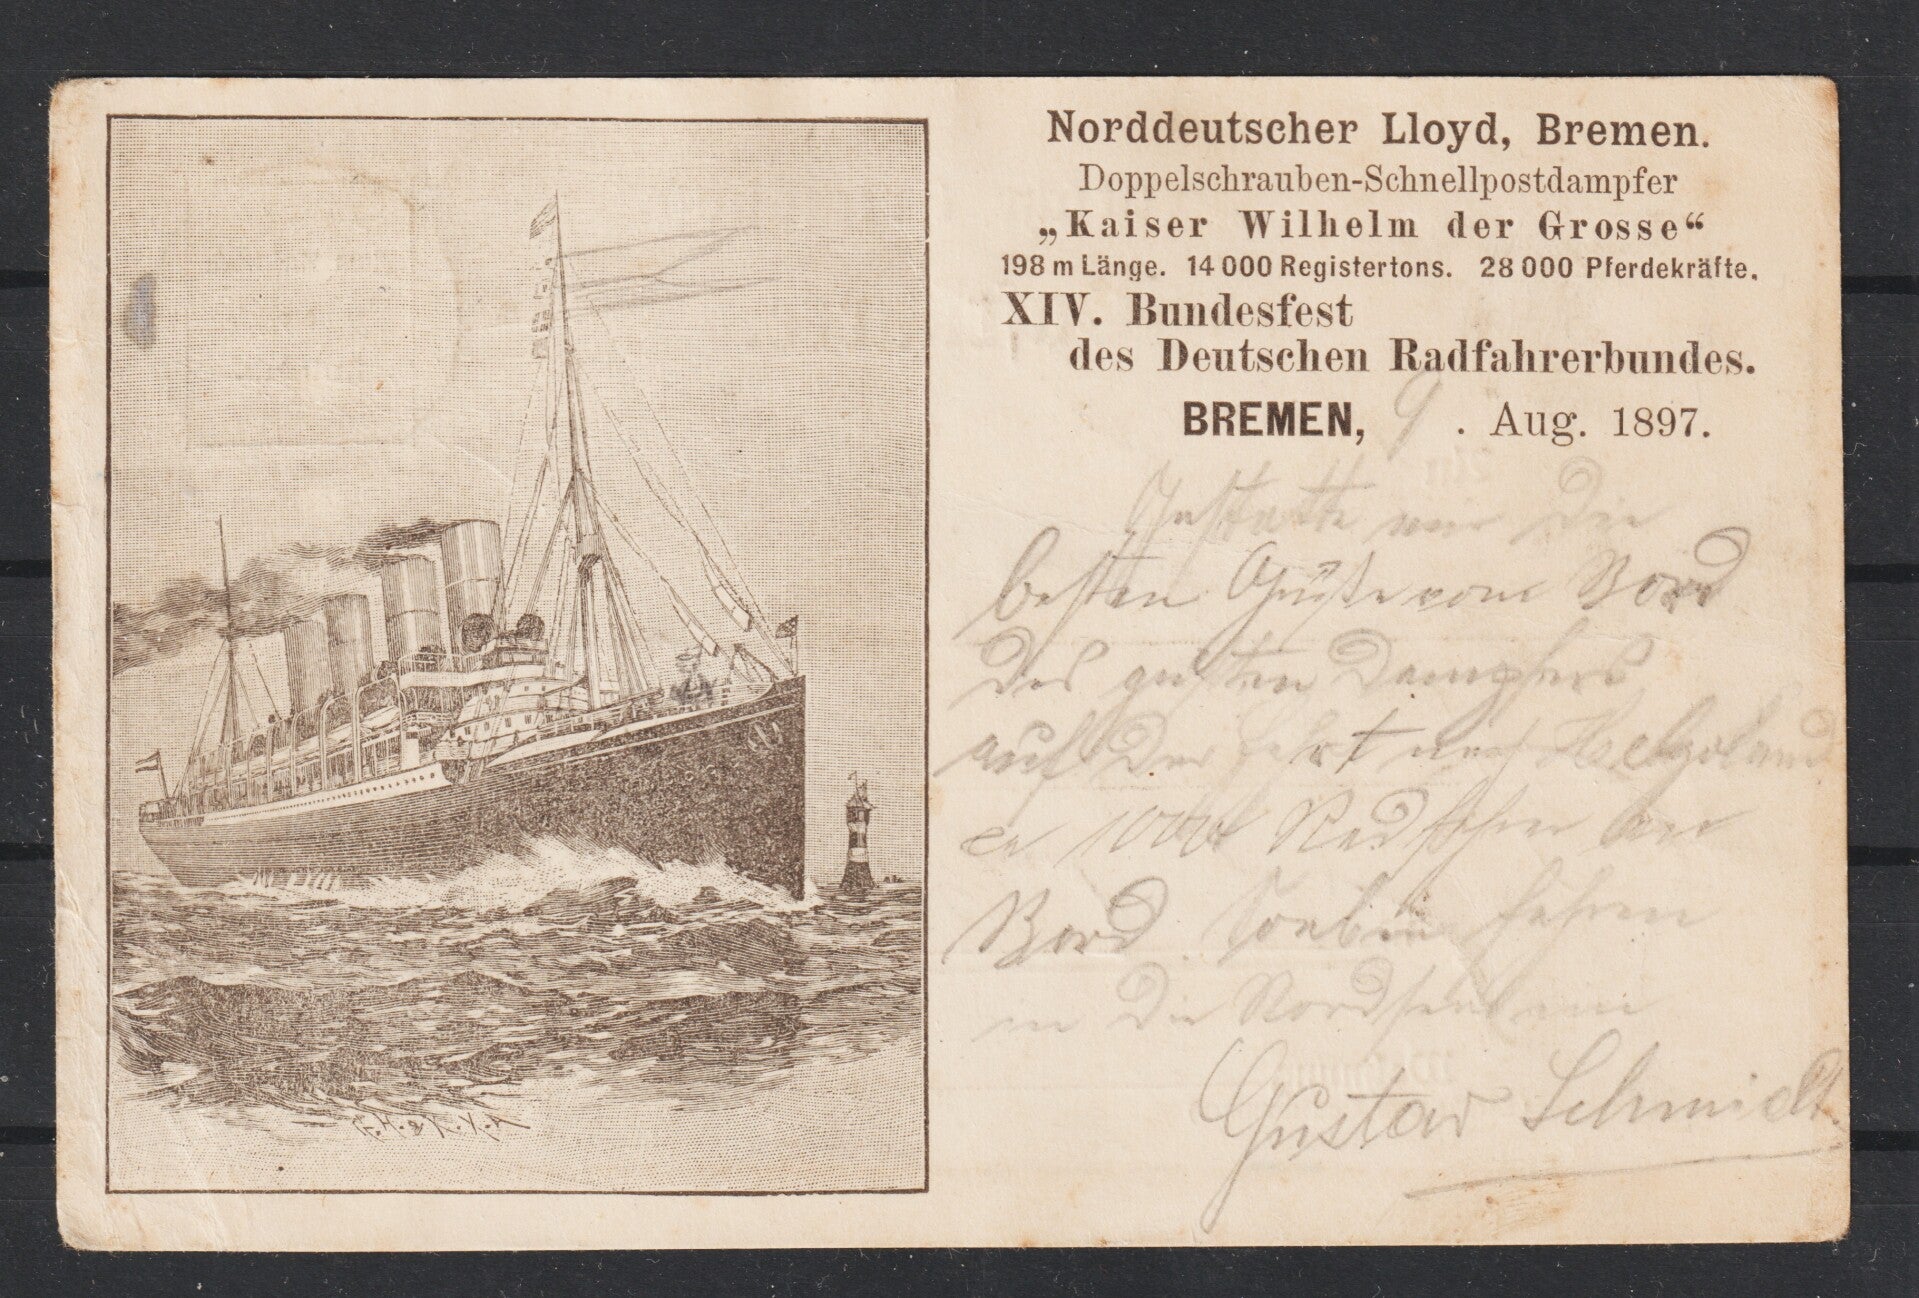 Norddeutscher Lloyd, Bremen.
Doppelschrauben-Schnellpostdampfer
„Kaiser Wilhelm der Grosse“
198 m Länge. 14 000 Registertons. 28 000 Pferdekräfte.
XIV. Bundesfest
des Deutschen Radfahrerbundes.
BREMEN, 9. Aug. 1897.
Gestatte mir die
besten Grüße vom Bord
des Dampfers
auf der Fahrt nach Helgoland
ca 1000 Radfahrer an
Bord. Soeben fahren
in die Nordsee
Gustav Schmidt